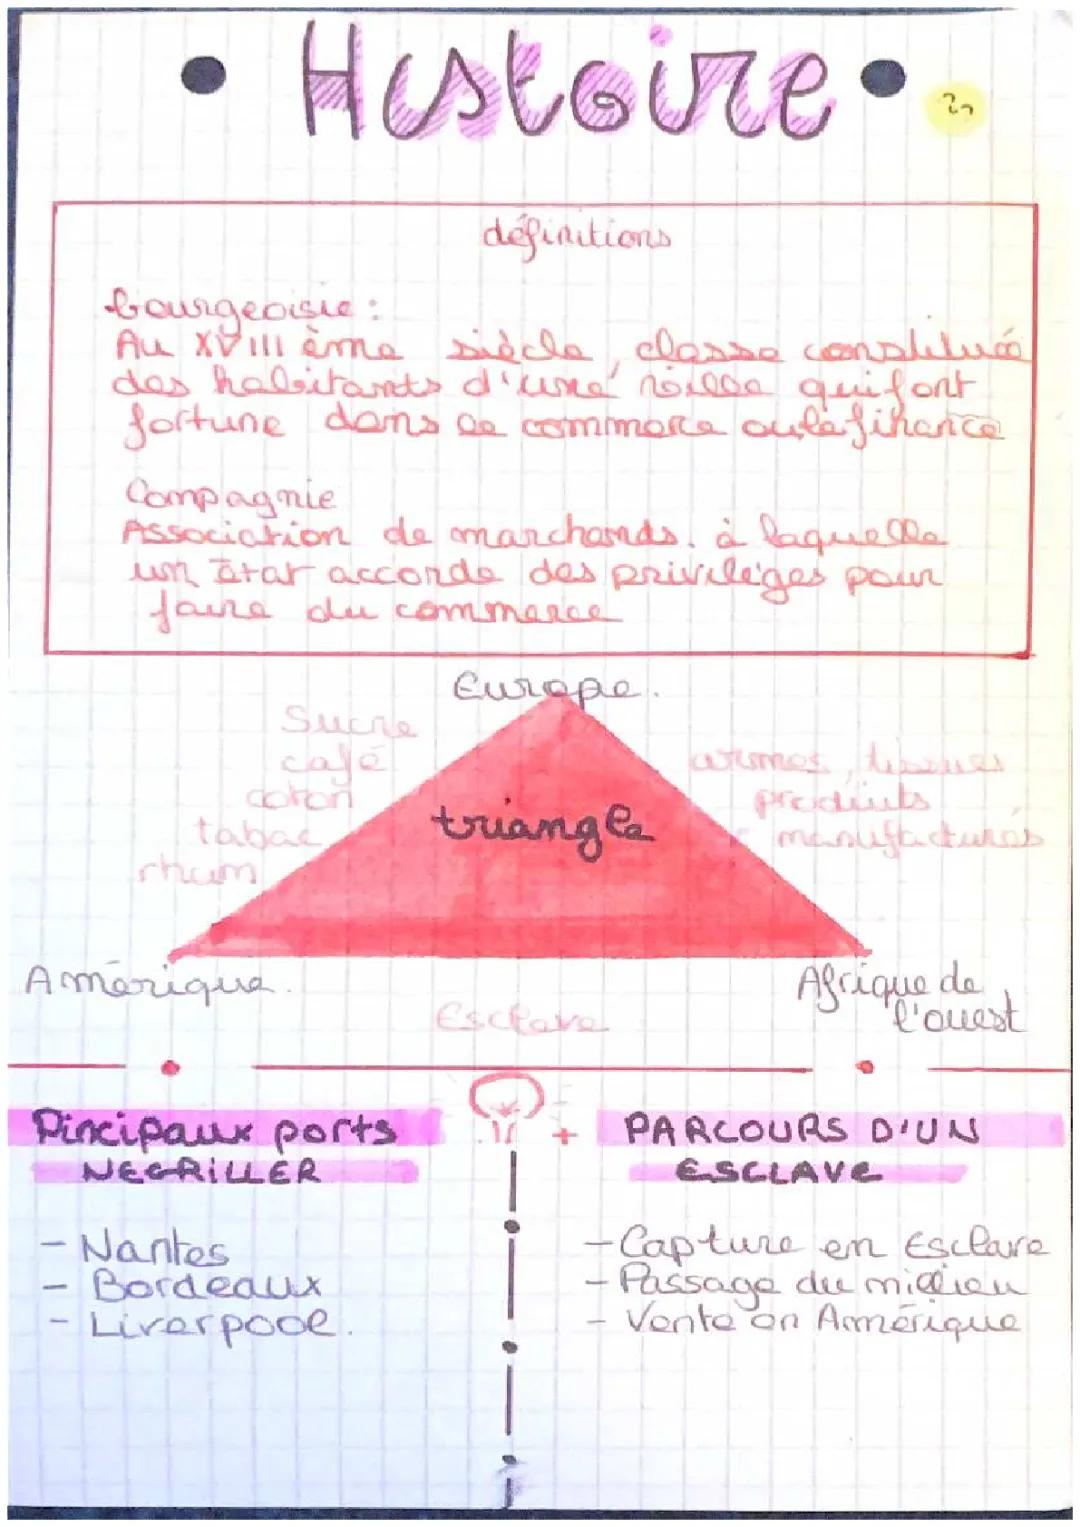 • Histoire •
définitions
bourgeoisie :
Au XVIII ème siècle, classe constituée
des habitants d'une ville qui font
fortune dans le commerce ou la finance
Compagnie
Association de marchands. à laquelle
un État accorde des privilèges pour
faire du commerce
Europe.
Sucre
café
coton
tabac
rhum
armes, tissues
produits
manufacturés
triangle
Amérique.
Afrique de
l'ouest
Esclave
Pincipaux ports
NEGRiLLER
- Nantes
- Bordeaux
- Liverpool.
+ PARCOURS D'UN
ESCLAVE
- Capture en Esclave
- Passage du milieu
- Vente en Amérique